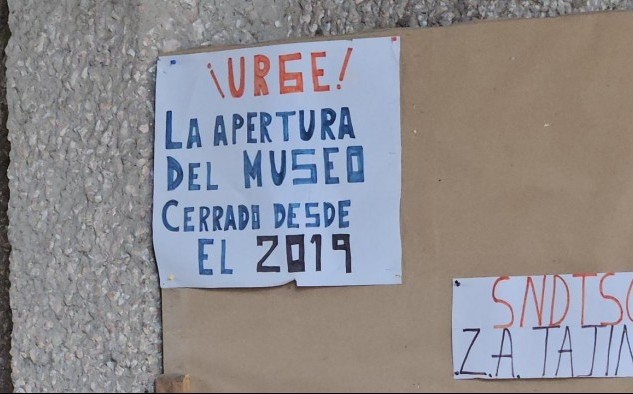 ¡URGE!
LA APERTURA
DEL MUSEO
CERRADO DESDE
EL 2019
SNDTSC
Z.A. TAJIN